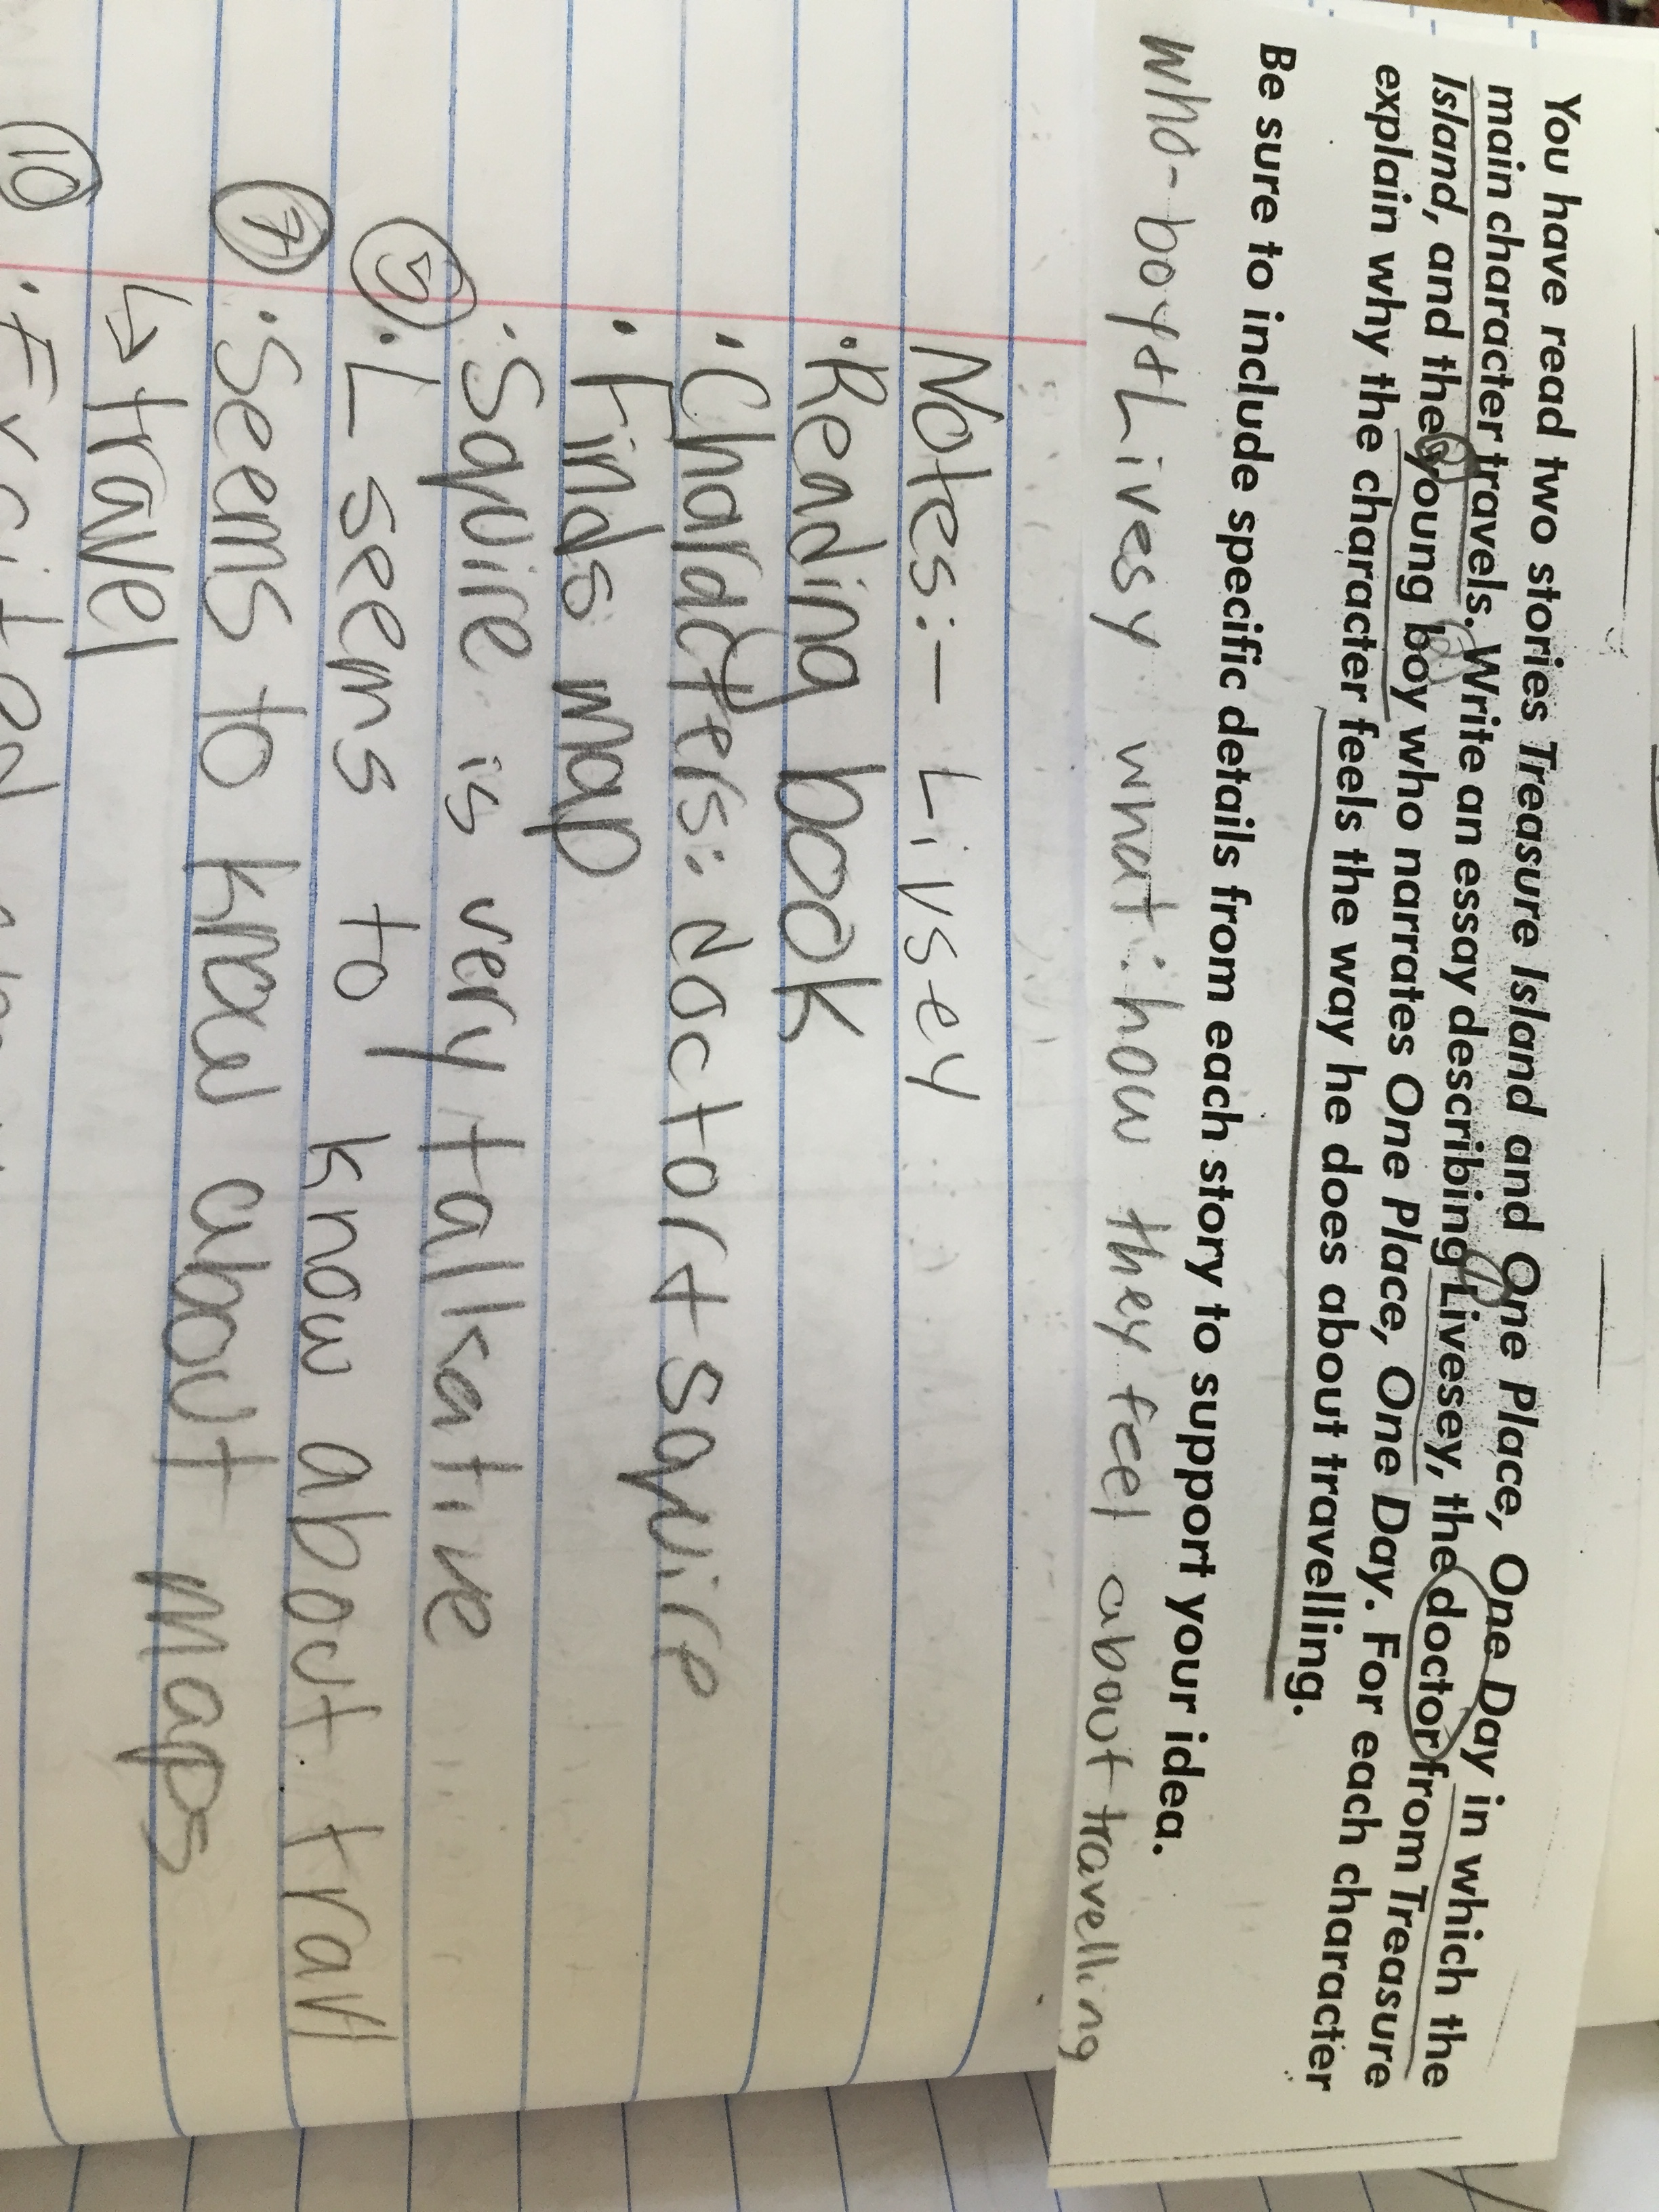 You have read two stories Treasure Island and One Place, One Day in which the
main character travels. Write an essay describing Livesey, the doctor from Treasure
Island, and the young boy who narrates One Place, One Day. For each character
explain why the character feels the way he does about travelling.
Be sure to include specific details from each story to support your idea.
who-boy+Livesy what:how they feel about travelling
Notes:- Livsey
·Reading book
·Characters: doctor+squire
·Finds map
·Squire is very talkative
5 ·L seems to know about travl
7 ·Seems to know about maps
↳travel
10 ·Excited